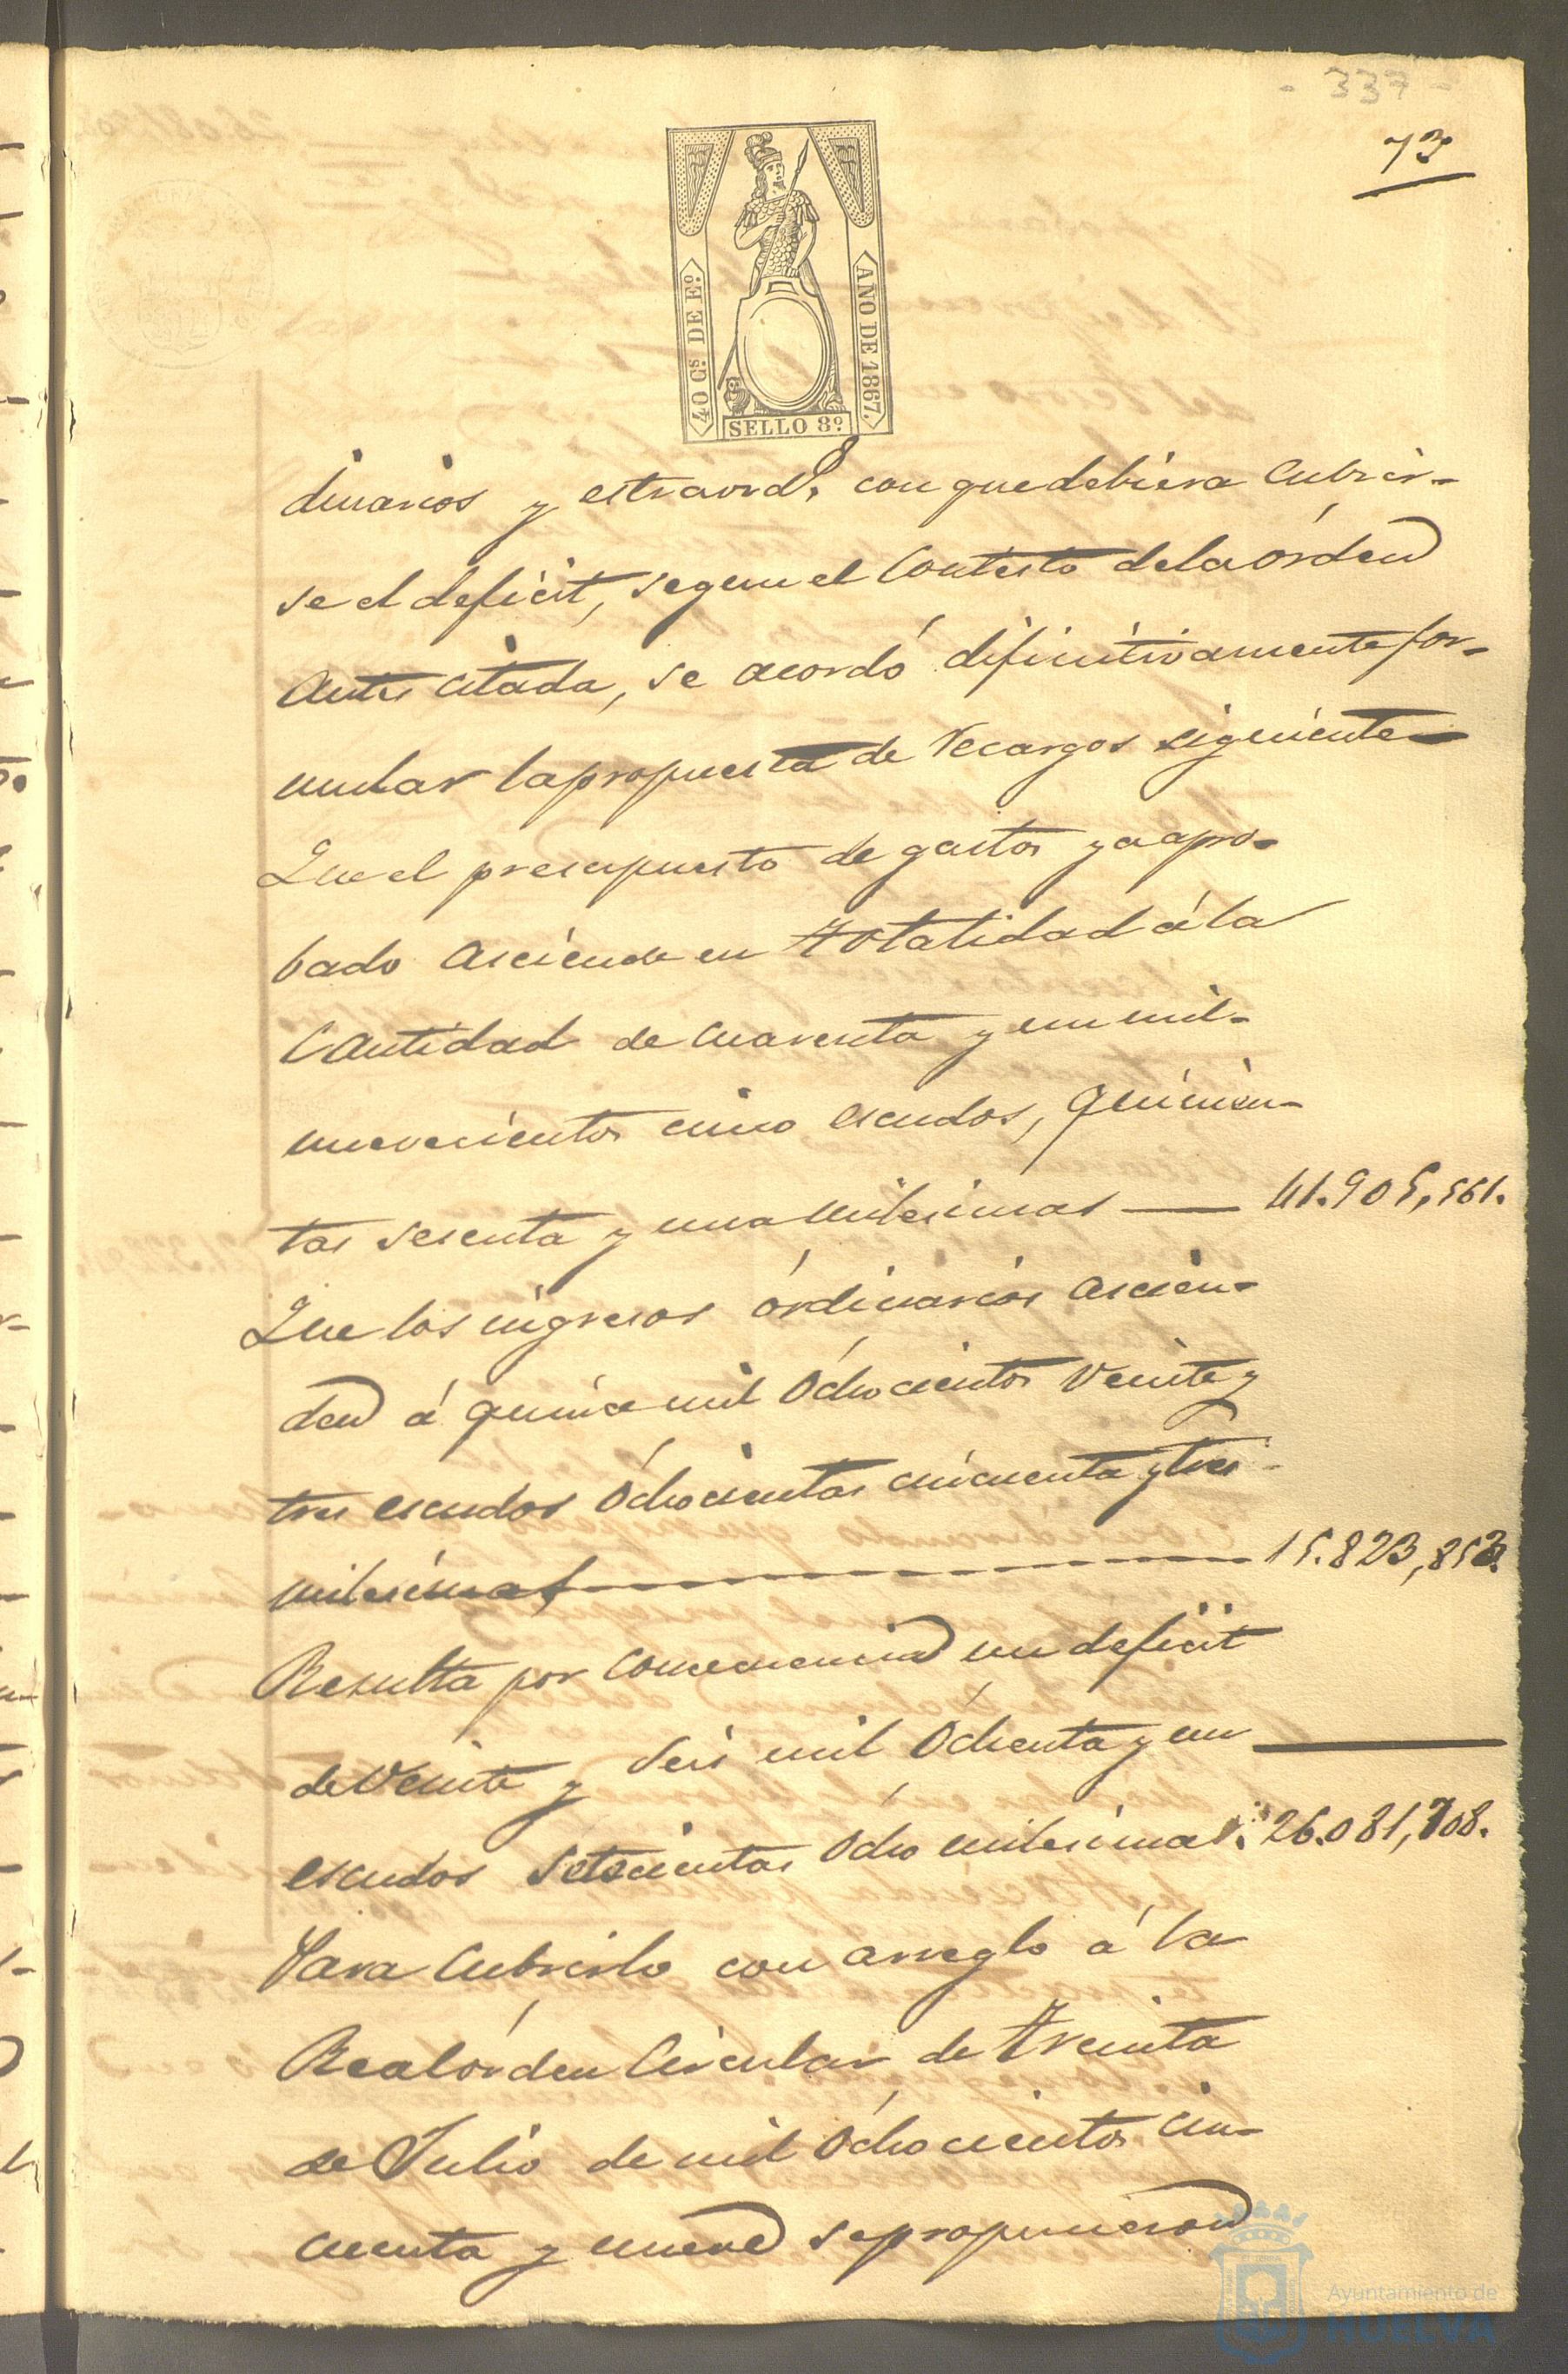 - 337 -
73
40 Cs. DE Eº.
AÑO DE 1867.
SELLO 8º
dinarios y estraord.s con que debiera cubrir-
se el deficit, segun el contesto de la órden
antes citada, se acordó difinitivamente for-
mular la propuesta de recargos siguiente
Que el presupuesto de gastos ya apro-
bado asciende en totalidad á la
Cantidad de cuarenta y un mil-
nuevecientos cinco escudos, quinien-
tas sesenta y una milesimas — 41.905,561.
Que los ingresos órdinarios ascien-
den á quince mil óchocientos veinte y
tres escudos óchocientas cincuenta y tres
milesimas 15.823,853.
Resulta por consecuencia un deficit
de veinte y seis mil óchenta y un
escudos setecientas ócho milesimas. 26.081,708.
Para cubrirlo con arreglo á la
Real órden Circular de treinta
de Julio de mil óchocientos cin-
cuenta y nueve se propusieron
Ayuntamiento de
HUELVA